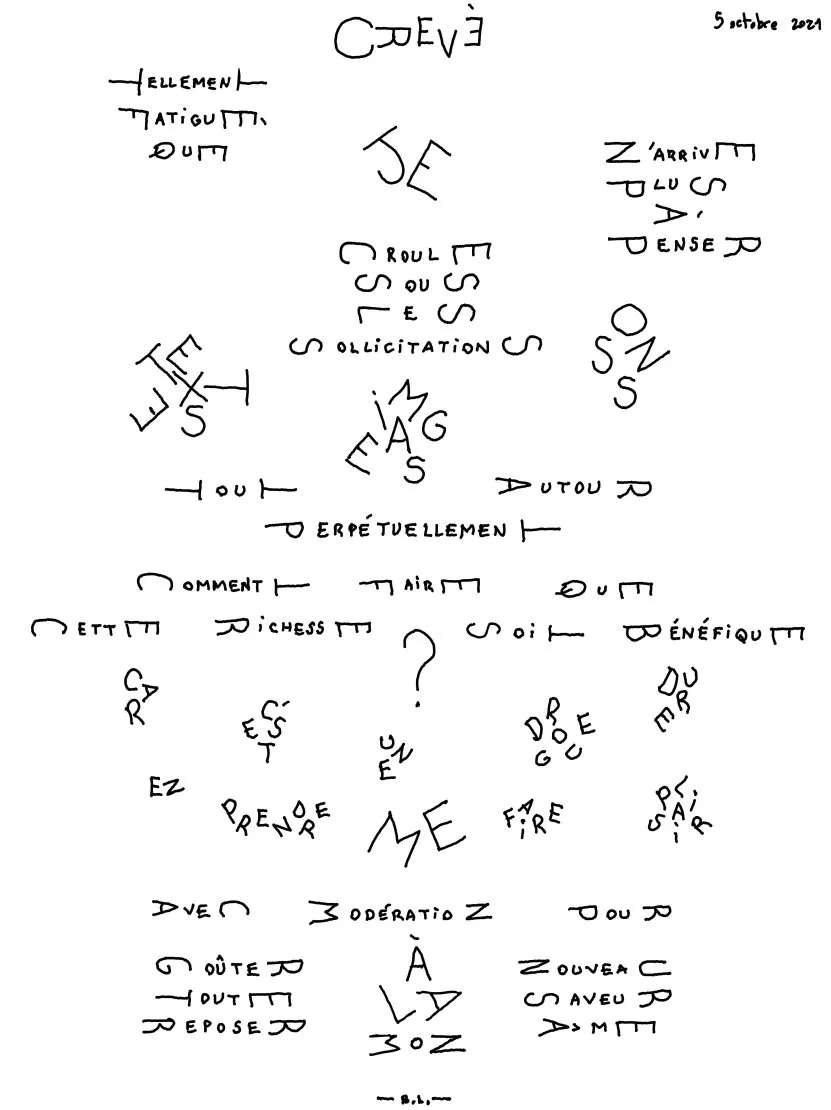 5 octobre 2021
CREVÉ
TELLEMENT
FATIGUÉ
QUE
JE
N'ARRIVE
PLUS
À
PENSER
CROULE
SOUS
LES
SOLLICITATIONS
TEXTES
IMAGES
SONS
TOUT AUTOUR
PERPÉTUELLEMENT
COMMENT FAIRE QUE
CETTE RICHESSE SOIT BÉNÉFIQUE
?
CAR C'EST UNE DROGUE DURE
EN PRENDRE ME FAIRE PLAISIR
AVEC MODÉRATION POUR
GOÛTER À NOUVEAU
TOUTE LA SAVEUR
REPOSER MON ÂME
— B.L. —